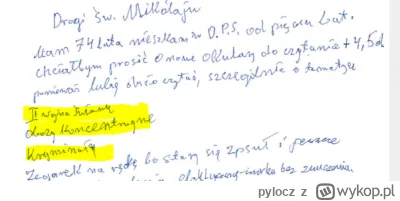 Drogi Św. Mikołaju
Mam 74 lata mieszkam w D.P.S. od pięciu lat.
chciałbym prosić o nowe okulary do czytania +4,5d
ponieważ lubię dużo czytać, szczególnie o tematyce
II wojna światowa
Obozy koncentracyjne
Kryminały
Zegarek na rękę bo stary się zpsuł i
elektryczny - marka bez znaczenia.
pylocz z wykop.pl